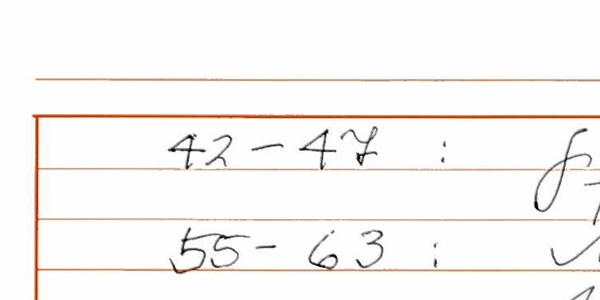 42 - 47 :
55 - 63 :